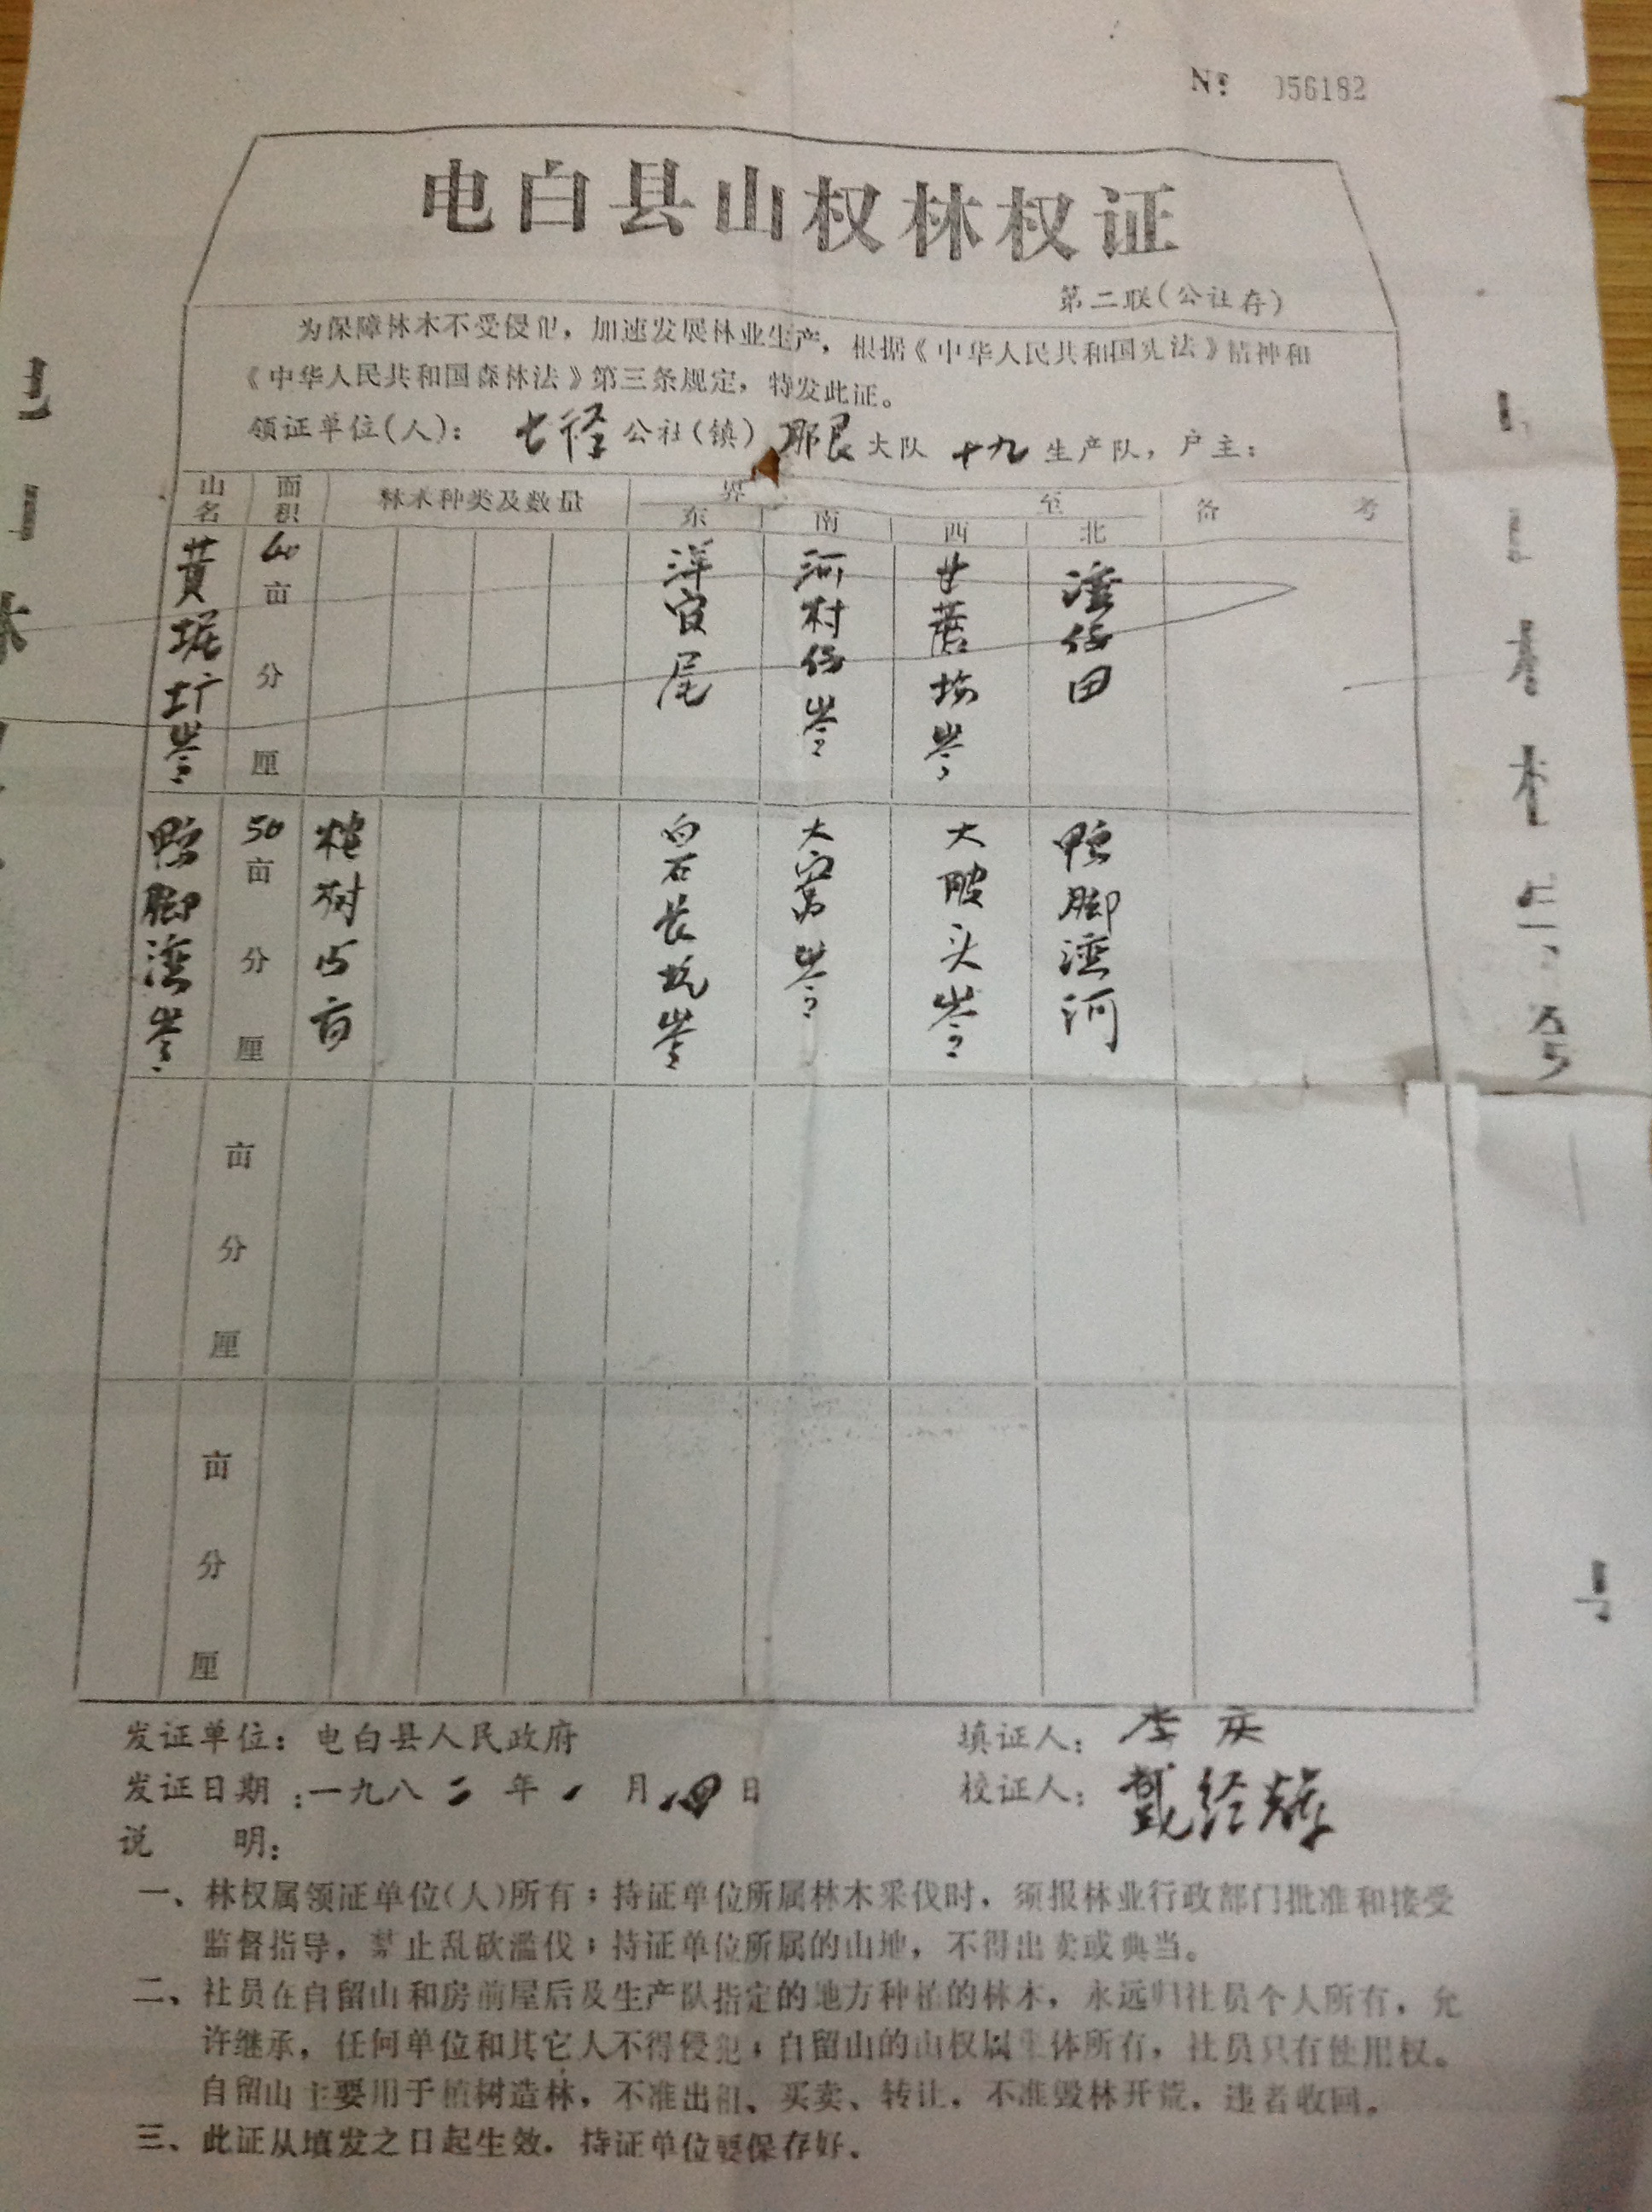 № 056182
电白县山权林权证
第二联(公社存)
为保障林木不受侵犯，加速发展林业生产，根据《中华人民共和国宪法》精神和
《中华人民共和国森林法》第三条规定，特发此证。
领证单位(人)： 七径 公社(镇) 那艮 大队 十九 生产队，户主：
山名 面积 林木种类及数量 界 至 备 考
东 南 西 北
黄坭圹岺 40亩 分 厘 洋官尾 河村仔岺 甘蔗 岺 湾仔田
鸭脚湾岺 50亩 分 厘 树 亩 白石长坑岺 大窝岺 大陂头岺 鸭脚湾河
亩 分 厘
亩 分 厘
发证单位：电白县人民政府 填证人：李庆
发证日期：一九八二年 月 日 校证人：戴经
说 明：
一、林权属领证单位(人)所有；持证单位所属林木采伐时，须报林业行政部门批准和接受
监督指导，禁止乱砍滥伐；持证单位所属的山地，不得出卖或典当。
二、社员在自留山和房前屋后及生产队指定的地方种植的林木，永远归社员个人所有，允
许继承，任何单位和其它人不得侵犯；自留山的山权属集体所有，社员只有使用权。
自留山主要用于植树造林，不准出租、买卖、转让，不准毁林开荒，违者收回。
三、此证从填发之日起生效，持证单位要保存好。